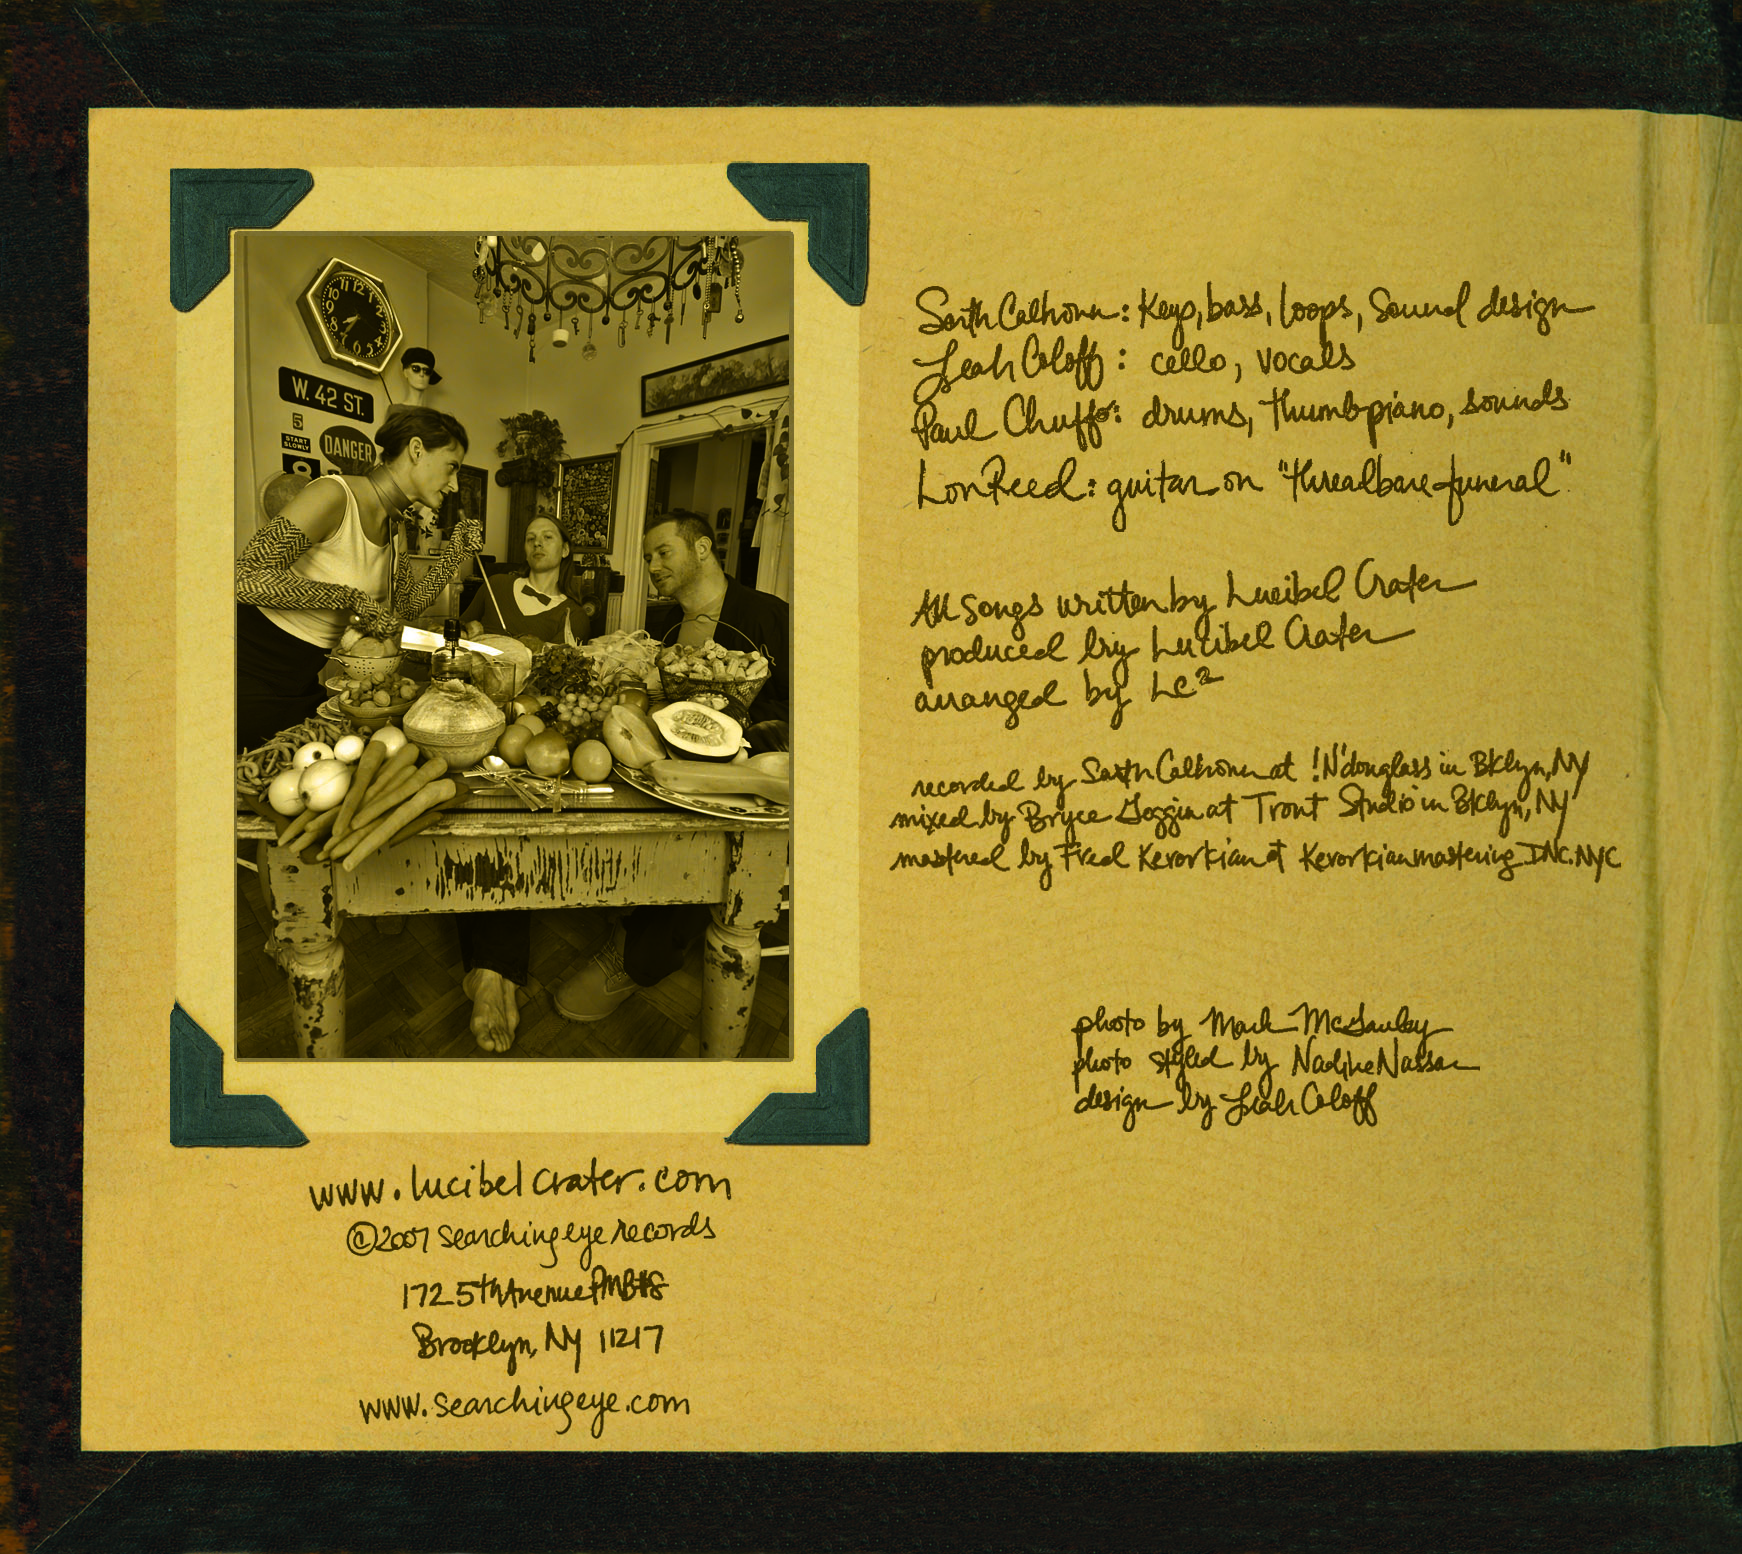 12
11
10
9
8
7
6
5
W. 42 ST.
5
START
SLOWLY
DANGER
Sarth Calhoun: Keys, bass, loops, Sound design
Leah Coloff: cello, vocals
Paul Chuffo: drums, thumbpiano, sounds
Lon Reed: guitar on "threadbare funeral"
All songs written by Lucibel Crater
produced by Lucibel Crater
arranged by LC²
recorded by Sarth Calhoun at !N'douglass in Bklyn, NY
mixed by Bryce Goggin at Trout Studio in Bklyn, NY
mastered by Fred Kevorkian at Kevorkian mastering INC. NYC
photo by Mark McGauley
photo styled by Nadine Nassar
design by Leah Coloff
www.lucibelcrater.com
©2007 searching eye records
172 5th Avenue PMB#8
Brooklyn, NY 11217
www.searchingeye.com